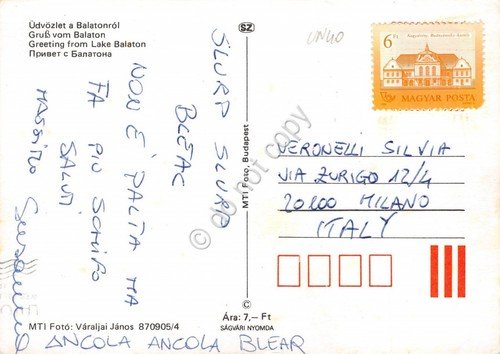 Üdvözlet a Balatonról
Gruß vom Balaton
Greeting from Lake Balaton
Привет с Балатона
SZ
UNHO
6 Ft
MAGYAR POSTA
SLURP SLURP
BLEAC
NON È PALTA MA
FA PIÙ SCHIFO
SALUTI
MASSIMO
ANCOLA ANCOLA BLEAR
VERONELLI SILVIA
VIA ZURIGO 12/4
20100 MILANO
ITALY
MTI Foto, Budapest
do not copy
Ára: 7,– Ft
SÁGVÁRI NYOMDA
MTI Fotó: Váraljai János 870905/4